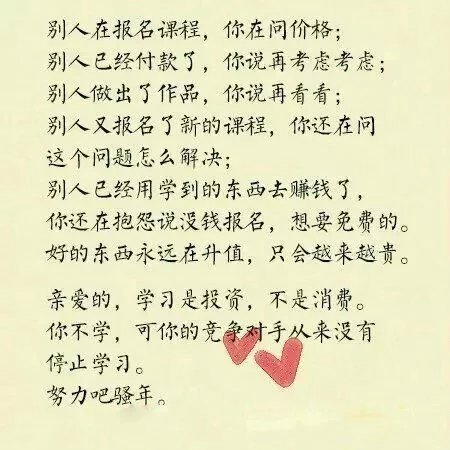 别人在报名课程，你在问价格；
别人已经付款了，你说再考虑考虑；
别人做出了作品，你说再看看；
别人又报名了新的课程，你还在问
这个问题怎么解决；
别人已经用学到的东西去赚钱了，
你还在抱怨说没钱报名，想要免费的。
好的东西永远在升值，只会越来越贵。
亲爱的，学习是投资，不是消费。
你不学，可你的竞争对手从来没有
停止学习。
努力吧骚年。